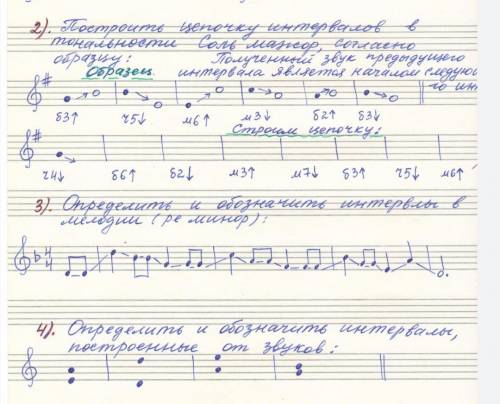 2). Построить цепочку интервалов в
тональности Соль мажор, согласно
образцу: Полученный звук предыдущего
Образец интервала является началом следующе
го инт
б3↑ ч5↓ м6↑ м3↓ б2↑ б3↓
Строим цепочку:
ч4↓ б6↑ б2↓ м3↑ м7↓ б3↑ ч5↓ м6↑
3). Определить и обозначить интервлы в
мелодии (ре минор):
4 4
4). Определить и обозначить интервалы,
построенные от звуков: